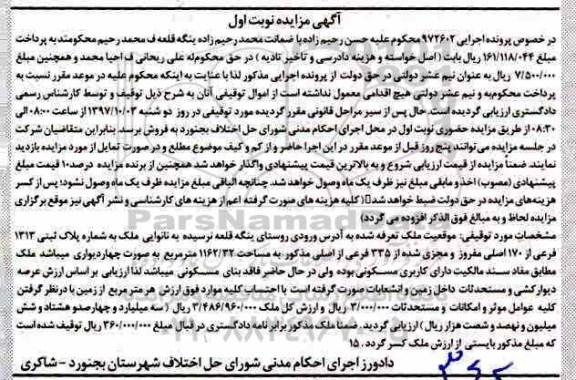 آگهی مزایده نوبت اول
در خصوص پرونده اجرایی ۹۷۲۶۰۲ محکوم علیه حسن رحیم زاده با ضمانت محمد رحیم زاده ینگه قلعه ف محمد رحیم محکومند به پرداخت
مبلغ ۱۶۱/۱۱۸/۰۴۴ ریال بابت (اصل خواسته و هزینه دادرسی و تاخیر تادیه) در حق محکوم‌له علی ریحانی ف احیا محمد و همچنین مبلغ
۷/۵۰۰/۰۰۰ ریال به عنوان نیم عشر دولتی در حق دولت از پرونده اجرایی مذکور لذا با عنایت به اینکه محکوم علیه در موعد مقرر نسبت به
پرداخت محکوم‌به و نیم عشر دولتی هیچ اقدامی معمول نداشته است از اموال توقیفی آنان به شرح ذیل توقیف و توسط کارشناس رسمی
دادگستری ارزیابی گردیده است. حال پس از سیر مراحل قانونی مقرر گردیده مورد توقیفی در روز دو شنبه ۱۳۹۷/۱۰/۰۳ از ساعت ۰۸:۰۰ الی
۰۸:۳۰ از طریق مزایده حضوری نوبت اول در محل اجرای احکام مدنی شورای حل اختلاف بجنورد به فروش برسد. بنابراین متقاضیان شرکت
در جلسه مزایده می توانند پنج روز قبل از موعد مقرر در این اجرا حاضر و از کم و کیف موضوع مطلع و در صورت تمایل از مورد مزایده بازدید
نمایند. ضمناً مزایده از قیمت ارزیابی شروع و به بالاترین قیمت پیشنهادی واگذار خواهد شد همچنین از برنده مزایده ۱۰ درصد قیمت مبلغ
پیشنهادی (مصوب) اخذ و مابقی مبلغ نیز ظرف یک ماه وصول خواهد شد. چنانچه الباقی مبلغ مزایده ظرف یک ماه وصول نشود؛ پس از کسر
هزینه‌های مزایده در حق دولت ضبط خواهد شد (کلیه هزینه های صورت گرفته اعم از هزینه های کارشناسی و نشر آگهی نیز موقع برگزاری
مزایده لحاظ و به مبالغ فوق الذکر افزوده می گردد)
مشخصات مورد توقیفی: موقعیت ملک تعرفه شده به آدرس ورودی روستای ینگه قلعه نرسیده به نانوایی ملک به شماره پلاک ثبتی ۱۳۱۳
فرعی از ۱۷۰ اصلی مفروز و مجزی شده از ۳۳۵ فرعی از اصلی مذکور به مساحت ۱۱۶۲/۳۲ مترمربع به صورت چهاردیواری میباشد ملک
مطابق مفاد سند مالکیت دارای کاربری مسکونی بوده ولی در حال حاضر فاقد بنای مسکونی میباشد لذا ارزیابی بر اساس ارزش عرصه
دیوارکشی و مستحدثات داخل زمین و انشعابات صورت گرفته است با احتساب کلیه موارد فوق ارزش هر متر مربع از زمین با در نظر گرفتن
کلیه عوامل موثر و امکانات و مستحدثات ۳/۰۰۰/۰۰۰ ریال و ارزش کل ملک ۳/۴۸۶/۹۶۰/۰۰۰ ریال (سه میلیارد و چهارصد و هشتاد و شش
میلیون و نهصد و شصت هزار ریال) ارزیابی گردید. ضمنا ملک مذکور برابر نامه دادگستری در قبال مبلغ ۳۶۰/۰۰۰/۰۰۰ ریال توقیف شده است
که مبلغ مذکور بایستی از ارزش ملک کسر گردد. ۱۵
دادورز اجرای احکام مدنی شورای حل اختلاف شهرستان بجنورد - شاکری
ParsNamadData